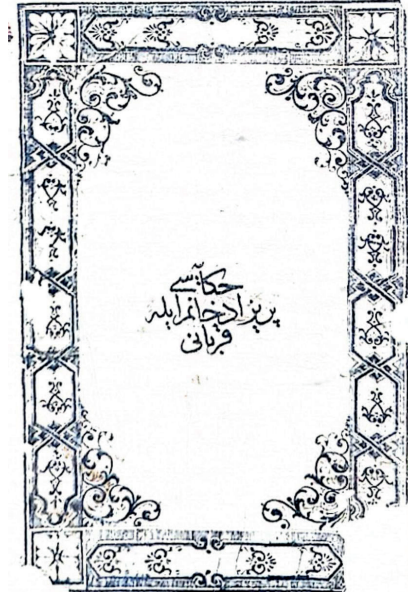 حكايه‌سى
پريزاد خانم ايله
قربانى